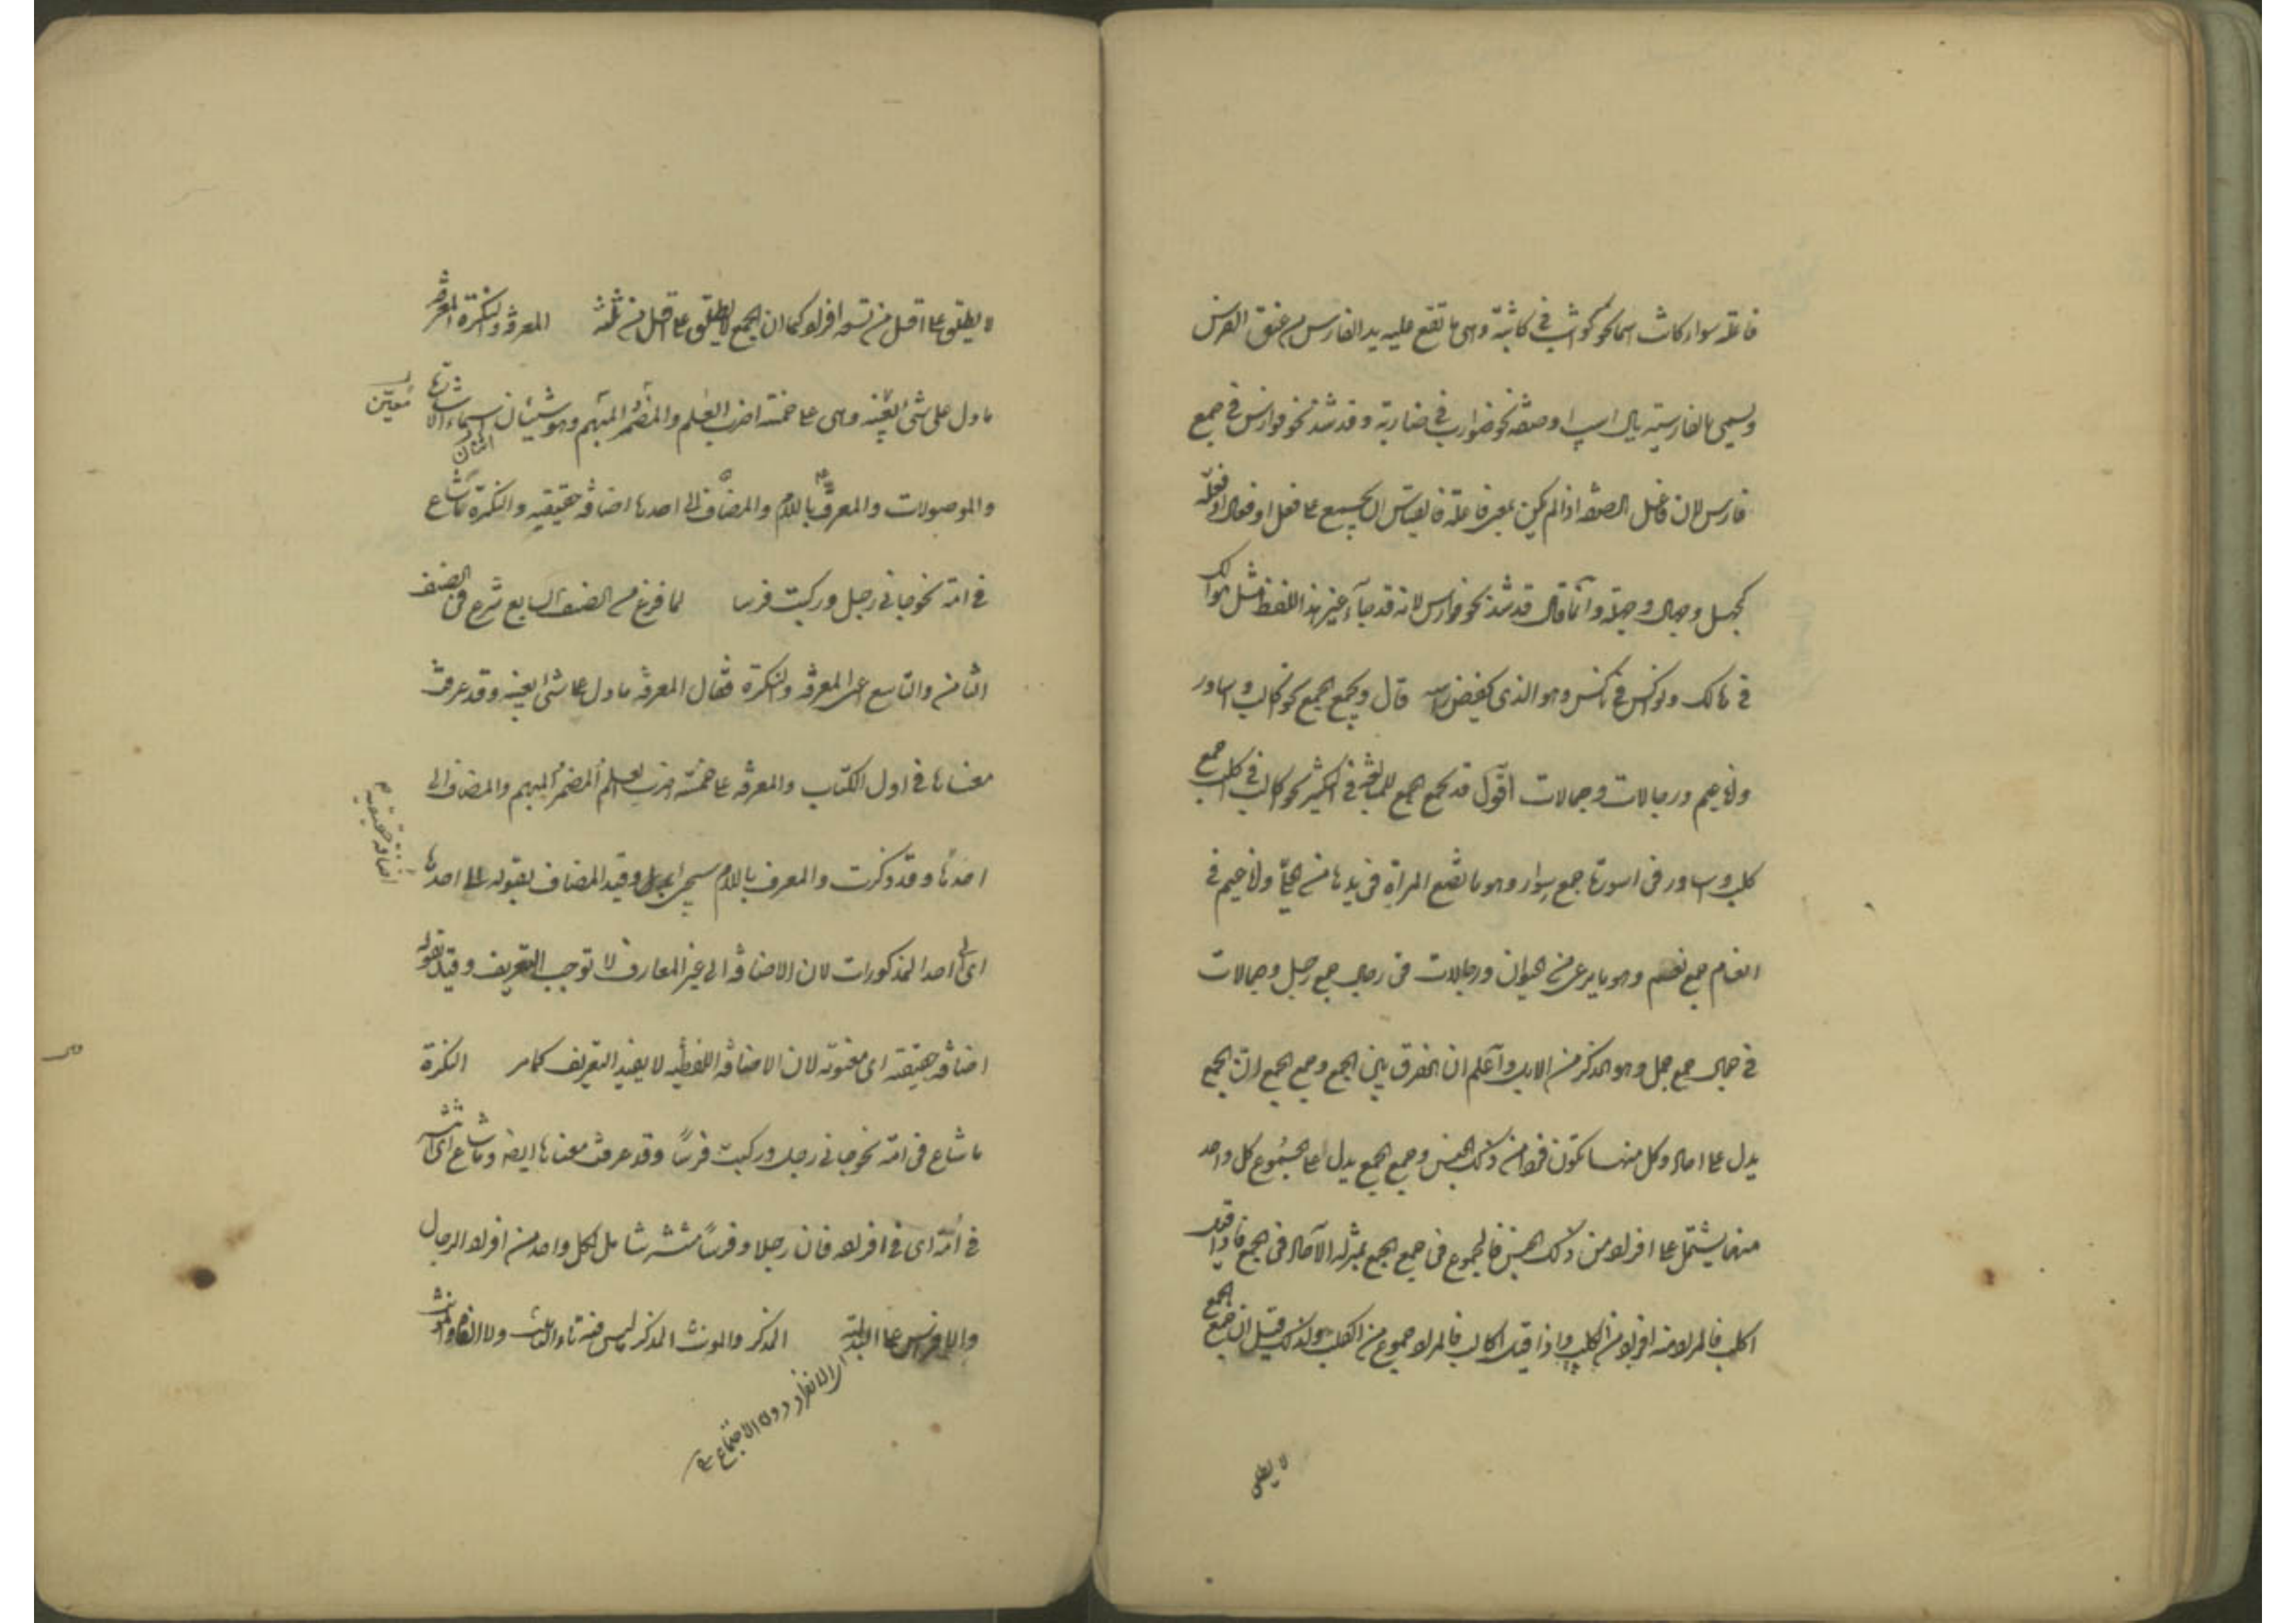 فاعلة سواء كانت اسما نحو كواثب في كاثبة وهى ما تقع عليه يد الفارس من عنق الفرس
ويسمى بالفارسية يال اسب او صفة نحو ضوارب في ضاربة وقد شذ نحو فوارس في جمع
فارس لان فاعل الصفة اذا لم يكن بمعنى فاعلة فالقياس ان يجمع على فعل او فعال او فعلة
كجهل وجهال وجهلة وانما قال قد شذ نحو فوارس لانه قد جاء غير هذا اللفظ مثل هوالك
في هالك ونواكس في ناكس وهو الذى يخفض راسه قال ويجمع الجمع نحو اكالب واساور
واناعيم ورجالات وجمالات اقول قد يجمع الجمع للمبالغة في التكثير نحو اكالب في اكلب جمع
كلب واساور في اسورة جمع سوار وهو ما تضع المراة في يدها من الحلى واناعيم في
انعام جمع نعم وهو ما يرعى من الحيوان ورجالات في رجال جمع رجل وجمالات
في جمال جمع جمل وهو الذكر من الابل واعلم ان الفرق بين الجمع وجمع الجمع ان الجمع
يدل على احاد وكل منها تكون فردا من ذلك الجنس وجمع الجمع يدل على الجموع كل واحد
منها يشتمل على افراد من ذلك الجنس فالمجموع في جمع الجمع بمنزلة الآحاد في الجمع فاذا قيل
اكلب فالمراد منه افراد من الكلب واذا قيل اكالب فالمراد جموع من الكلب ولذلك قيل ان جمع الجمع
لا يطلق
لا يطلق على اقل من تسعة افراد كما ان الجمع لا يطلق على اقل من ثلثة المعرفة والنكرة المعرفة
ما دل على شئ بعينه وهى على خمسة اضرب العلم والمضمر والمبهم وهو شيئان اسماء الاشارة
معيّن
والموصولات والمعرف باللام والمضاف الى احدها اضافة حقيقية والنكرة ما شاع
في امته نحو جاءنى رجل وركبت فرسا لما فرغ من الصنف السابع شرع في الصنف
الثامن والتاسع اعنى المعرفة والنكرة فقال المعرفة ما دل على شئ بعينه وقد عرفت
معناها في اول الكتاب والمعرفة على خمسة اضرب العلم المضمر المبهم والمضاف الى
اضافة حقيقية
احدها وقد ذكرت والمعرف باللام سيجئ وقيد المضاف بقوله الى احدها
اى الى احد المذكورات لان الاضافة الى غير المعارف لا توجب التعريف وقيد بقوله
اضافة حقيقية اى معنوية لان الاضافة اللفظية لا يفيد التعريف كما مر النكرة
ما شاع في امته نحو جاءنى رجل وركبت فرسا وقد عرفت معناها ايضا وما شاع اى انتشر
في امته اى في افراده فان رجلا وفرسا منتشر شامل لكل واحد من افراد الرجال
والافراس على البدلية المذكر والمونث المذكر ما ليس فيه تاء التانيث ولا الالف والمونث
الانفراد دون الاجتماع